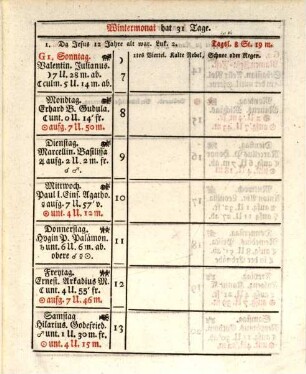 Wintermonat hat 31 Tage.
1. Da Jesus 12 Jahre alt war. Luk. 2.
Tagsl. 8 St. 19 m.
G1, Sonntag.
Valentin. Julianus.
7 U. 28 m. ab.
culm. 5 U. 14 m. ab.
7
1tes Viertel. Kalte Nebel, Schnee oder Regen.
Montag.
Erhard B. Gudula.
unt. 0 U. 14' fr.
aufg. 7 U. 50 m.
8
Dienstag.
Marcellin. Basilissa
aufg. 2 U. 2 m. fr.
9
Mittwoch.
Paul I. Einf. Agatho.
aufg. 7 U. 57' v.
☉ unt. 4 U. 12 m.
10
Donnerstag.
Hygin P. Palämon.
unt. 6 U. 6 m. ab.
obere
11
Freytag.
Ernest. Arkadius M.
unt. 4 U. 55' fr.
☉ aufg. 7 U. 46 m.
12
Samstag
Hilarius. Godefried.
unt. 1 U. 30 m. fr.
☉ unt. 4 U. 15 m.
13